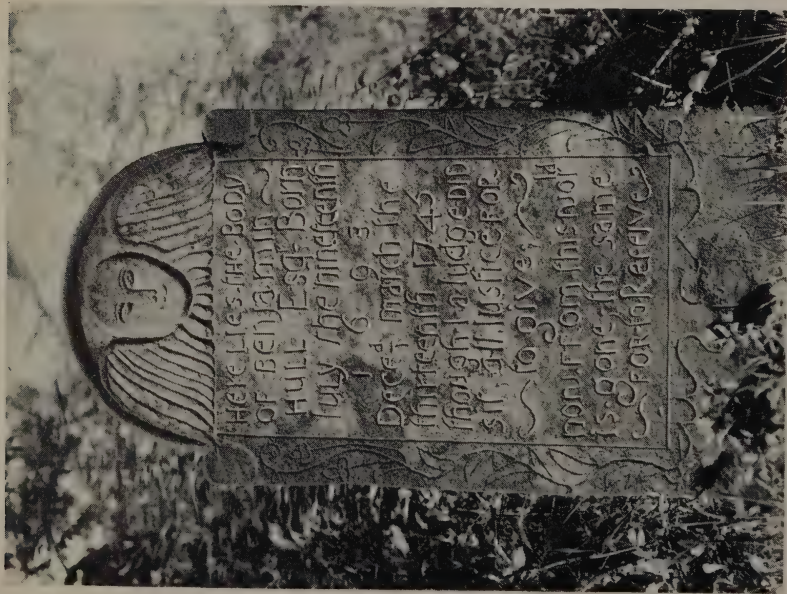 HERE LIES THE BODY
OF BENJAMIN
HULL ESQr BORN
IULY the nineteenth
1 6 9 3
Deced march the
thirteenth 1745
though a Iudge Did
sit all Iustice FOR
to give,
from this world
Is gone the same
FOR to ReCeive